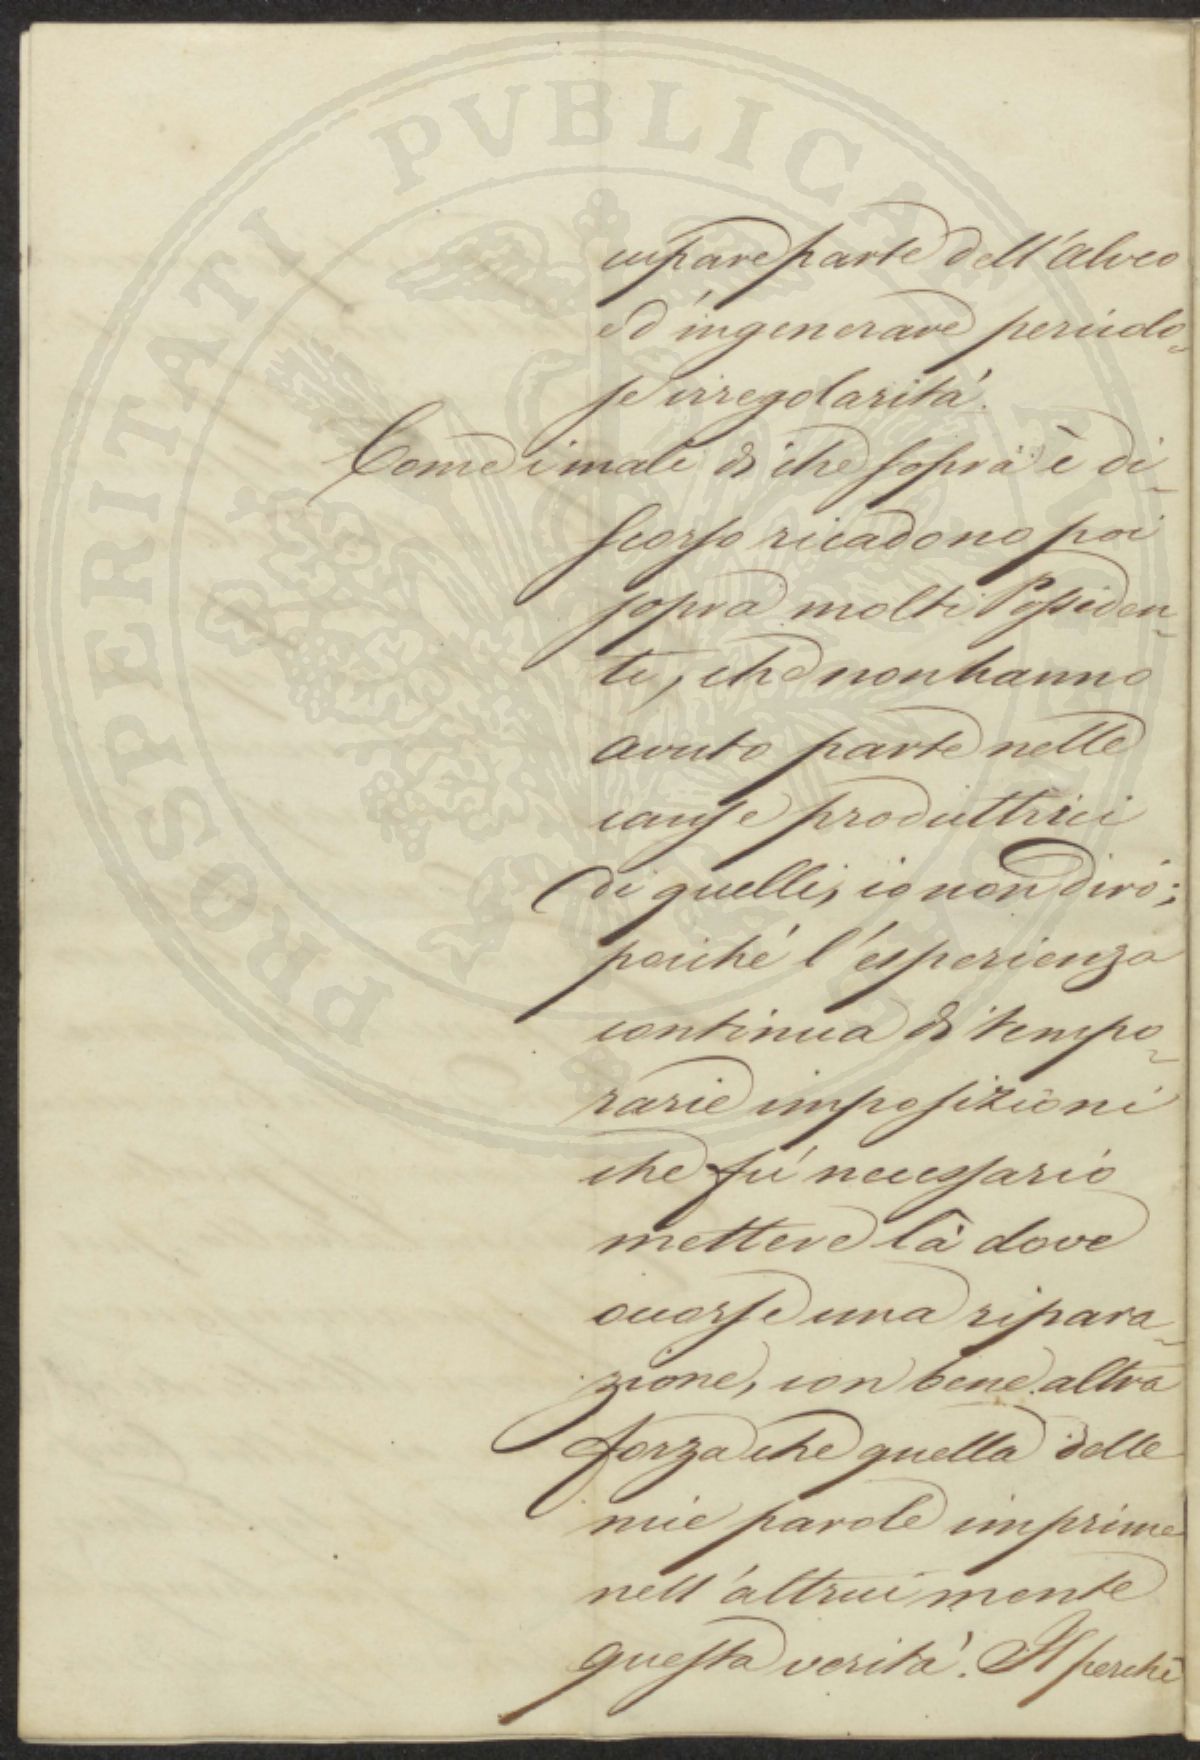 PROSPERITATI PVBLICAE AVGENDAE
cupare parte dell'alveo
ed ingenerare pericolo-
se irregolarità.
Come i mali di che sopra è di-
scorso ricadono poi
sopra molti Possiden-
ti, che non hanno
avuto parte nelle
cause produttrici
di quelli, io non dirò;
poiché l'esperienza
continua di tempo-
rarie imposizioni
che fú necessario
mettere là dove
occorse una ripara-
zione, con bene altra
forza che quella delle
mie parole imprime
nell'altrui mente
questa verità. Il perché